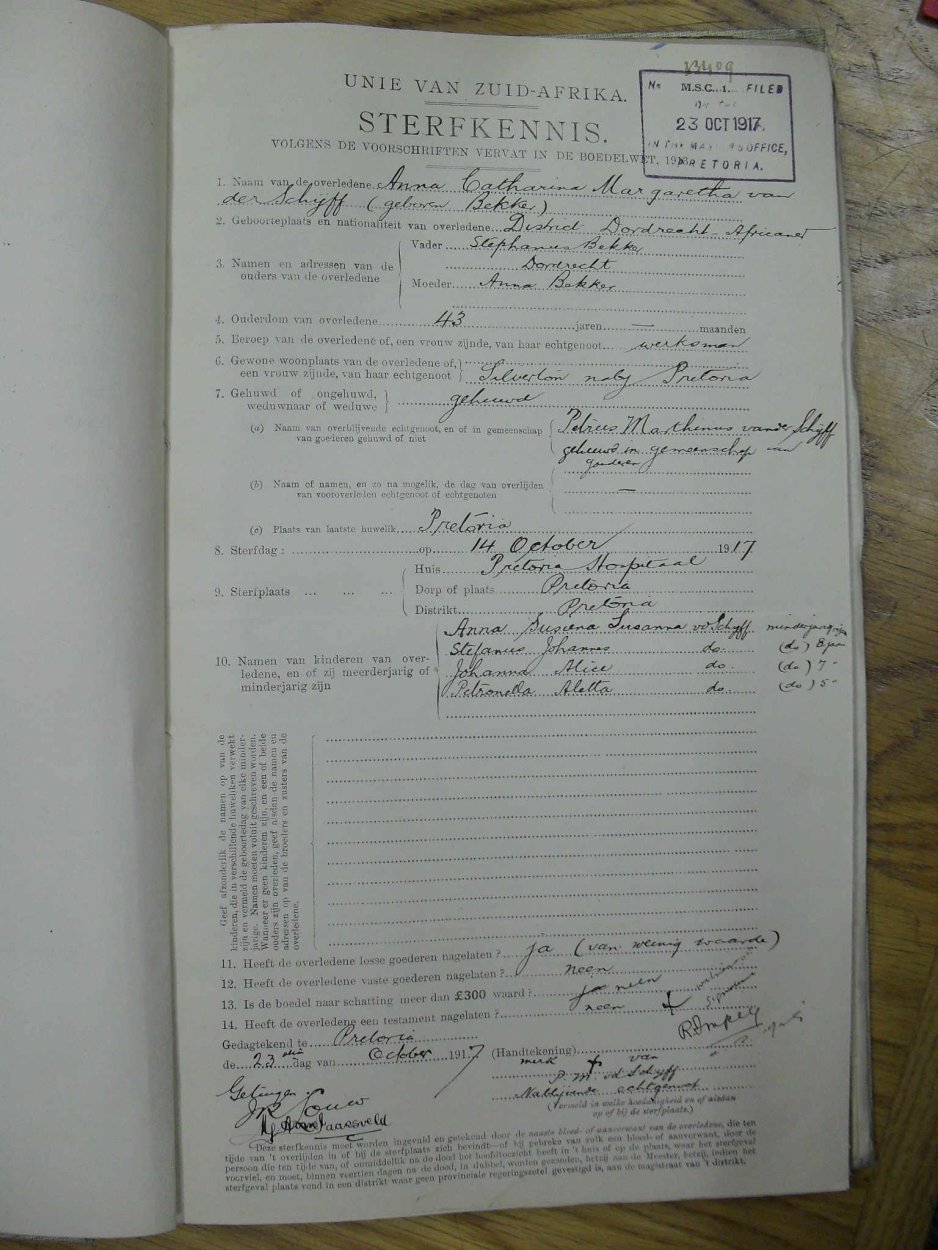 13409
No M.S.C. 1. FILED
ON THE
23 OCT 1917
IN THE MASTER'S OFFICE,
PRETORIA.
UNIE VAN ZUID-AFRIKA.
STERFKENNIS.
VOLGENS DE VOORSCHRIFTEN VERVAT IN DE BOEDELWET, 1913.
1. Naam van de overledene Anna Catharina Margaretha van
der Schijff (geboren Bekker)
2. Geboorteplaats en nationaliteit van overledene District Dordrecht Africaner
3. Namen en adressen van de ouders van de overledene
Vader Stephanus Bekker
Dordrecht
Moeder Anna Bekker
4. Ouderdom van overledene 43 jaren — maanden
5. Beroep van de overledene of, een vrouw zijnde, van haar echtgenoot werksman
6. Gewone woonplaats van de overledene of,
een vrouw zijnde, van haar echtgenoot Silverton naby Pretoria
7. Gehuwd of ongehuwd,
weduwnaar of weduwe gehuwd
(a) Naam van overblijvende echtgenoot, en of in gemeenschap
van goederen gehuwd of niet
Petrus Marthinus van der Schijff
gehuwd in gemeenschap van
goederen
(b) Naam of namen, en zo na mogelik, de dag van overlijden
van vooroverleden echtgenoot of echtgenoten —
(c) Plaats van laatste huwelik Pretoria
8. Sterfdag : op 14 October 1917
9. Sterfplaats ... ... ...
Huis Pretoria Hospitaal
Dorp of plaats Pretoria
Distrikt Pretoria
10. Namen van kinderen van over-
ledene, en of zij meerderjarig of
minderjarig zijn
Anna Susanna vd Schyff
Stefanus Johannes do. (do) 8
Johanna Alice do. (do) 7 "
Petronella Aletta do. (do) 5 "
Geef afzonderlik de namen op van de
kinderen, die in verschillende huweliken verwekt
zijn en vermeld de geboortedag van elke minder-
jarige. Namen moeten voluit geschreven worden.
Wanneer er geen kinderen zijn, en een of beide
ouders zijn overleden, geef alsdan de namen en
adressen op van de broeders en zusters van de
overledene.
11. Heeft de overledene losse goederen nagelaten ? ja (van weinig waarde)
12. Heeft de overledene vaste goederen nagelaten ? neen
13. Is de boedel naar schatting meer dan £300 waard ? ja neen
14. Heeft de overledene een testament nagelaten ? neen
Gedagtekend te Pretoria
de 23 dag van October 1917 (Handtekening)
merk + van
P. M. vd Schyff
Nablijvende echtgenoot
(Vermeld in welke hoedanigheid en of aldan
op of bij de sterfplaats.)
Getuigen
Louw
Deze sterfkennis moet worden ingevuld en getekend door de naaste bloed- of aanverwant van de overledene, die ten
tijde van 't overlijden in of bij de sterfplaats zich bevindt—of bij gebreke van zulk een bloed- of aanverwant, door de
persoon die ten tijde van, of onmiddellik na de dood het hoofdtoezicht heeft in 't huis of op de plaats, waar het sterfgeval
voorviel, en moet, binnen veertien dagen na de dood, in dubbel, worden gezonden, hetzij aan de Meester, hetzij, indien het
sterfgeval plaats vond in een distrikt waar geen provinciale regeringszetel gevestigd is, aan de magistraat van 't distrikt.